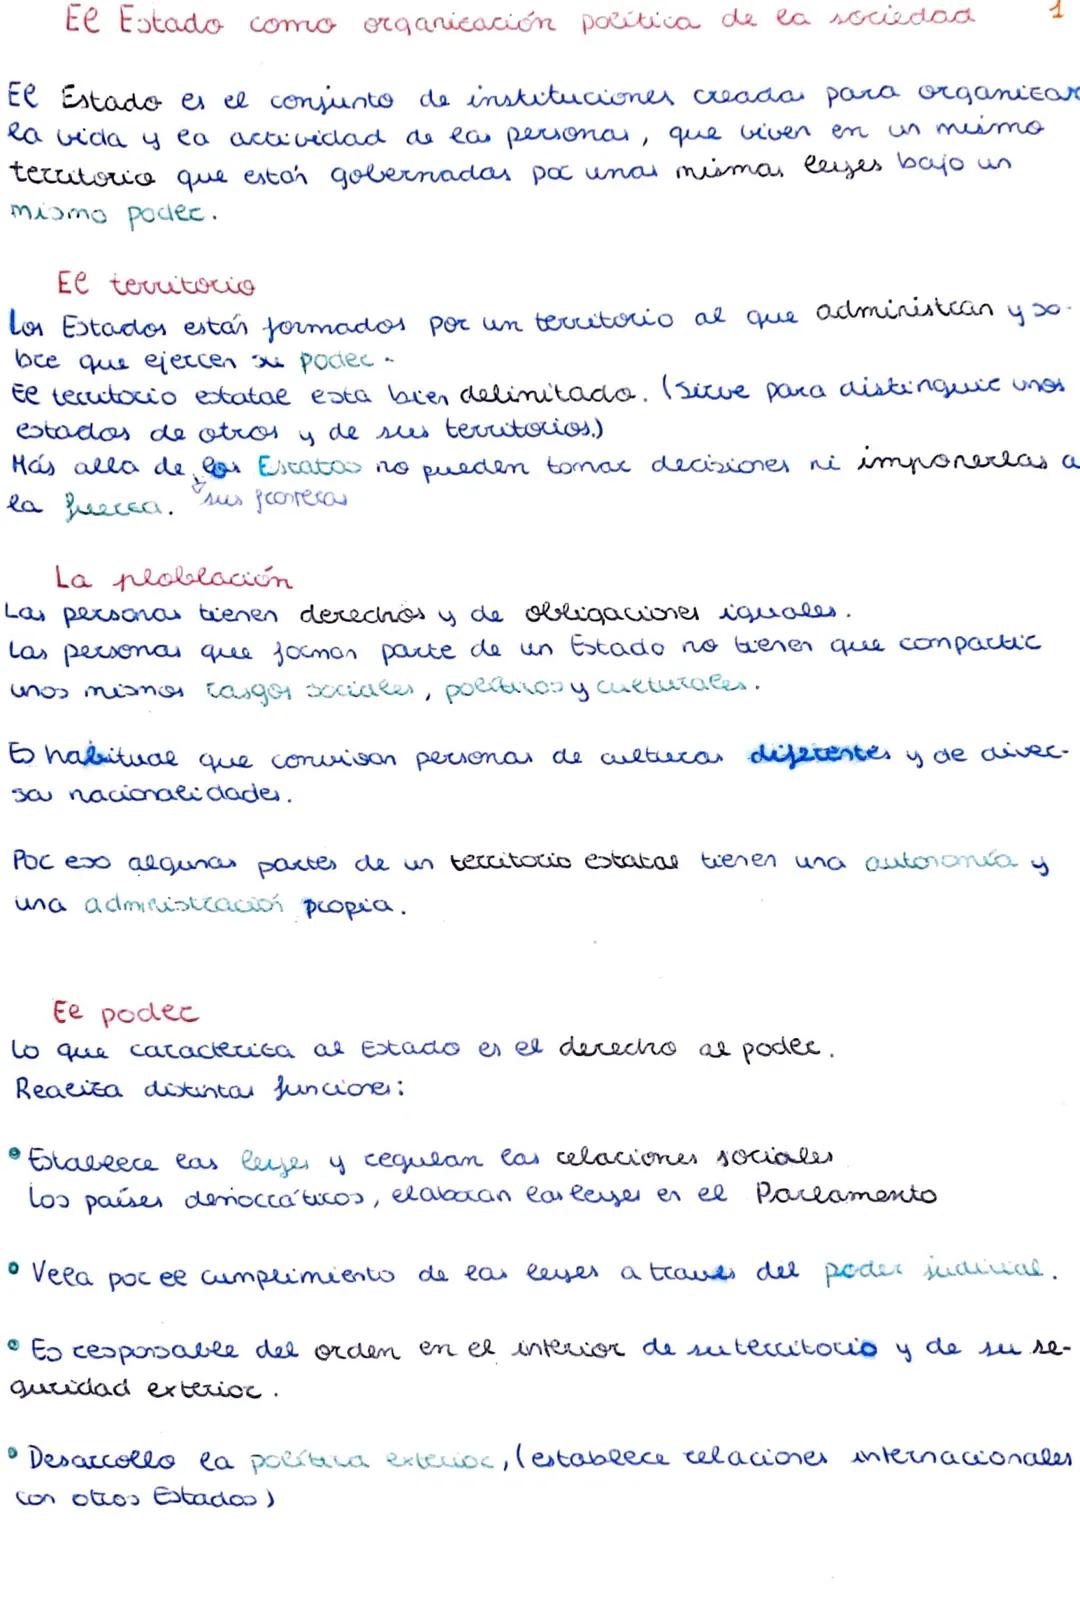 El Estado como organización política de la sociedad
1
El Estado es el conjunto de instituciones creadas para organizar
la vida y la actividad de las personas, que viven en un mismo
territorio que están gobernadas por unas mismas leyes bajo un
mismo poder.
El territorio
Los Estados están formados por un territorio al que administran y so-
bre que ejercen su poder.
El territorio estatal esta bien delimitado. (Sirve para distinguir unos
estados de otros y de sus territorios.)
Más alla de los Estatos no pueden tomar decisiones ni imponerlas a
la fuerza. sus fronteras
La ploblación
Las personas tienen derechos y de obligaciones iguales.
Las personas que forman parte de un Estado no tienen que compartir
unos mismos rasgos sociales, políticos y culturales.
Es habitual que convivan personas de culturas diferentes y de diver-
sas nacionalidades.
Por eso algunas partes de un territorio estatal tienen una autonomía y
una administración propia.
El poder
Lo que caracteriza al Estado es el derecho al poder.
Realiza distintas funciones:
• Establece las leyes y regulan las relaciones sociales
Los países democráticos, elaboran las leyes en el Parlamento
• Vela por el cumplimiento de las leyes a traves del poder judicial.
• Es responsable del orden en el interior de su territorio y de su se-
guridad exterior.
• Desarrollo la política exterior, (establece relaciones internacionales
con otros Estados)